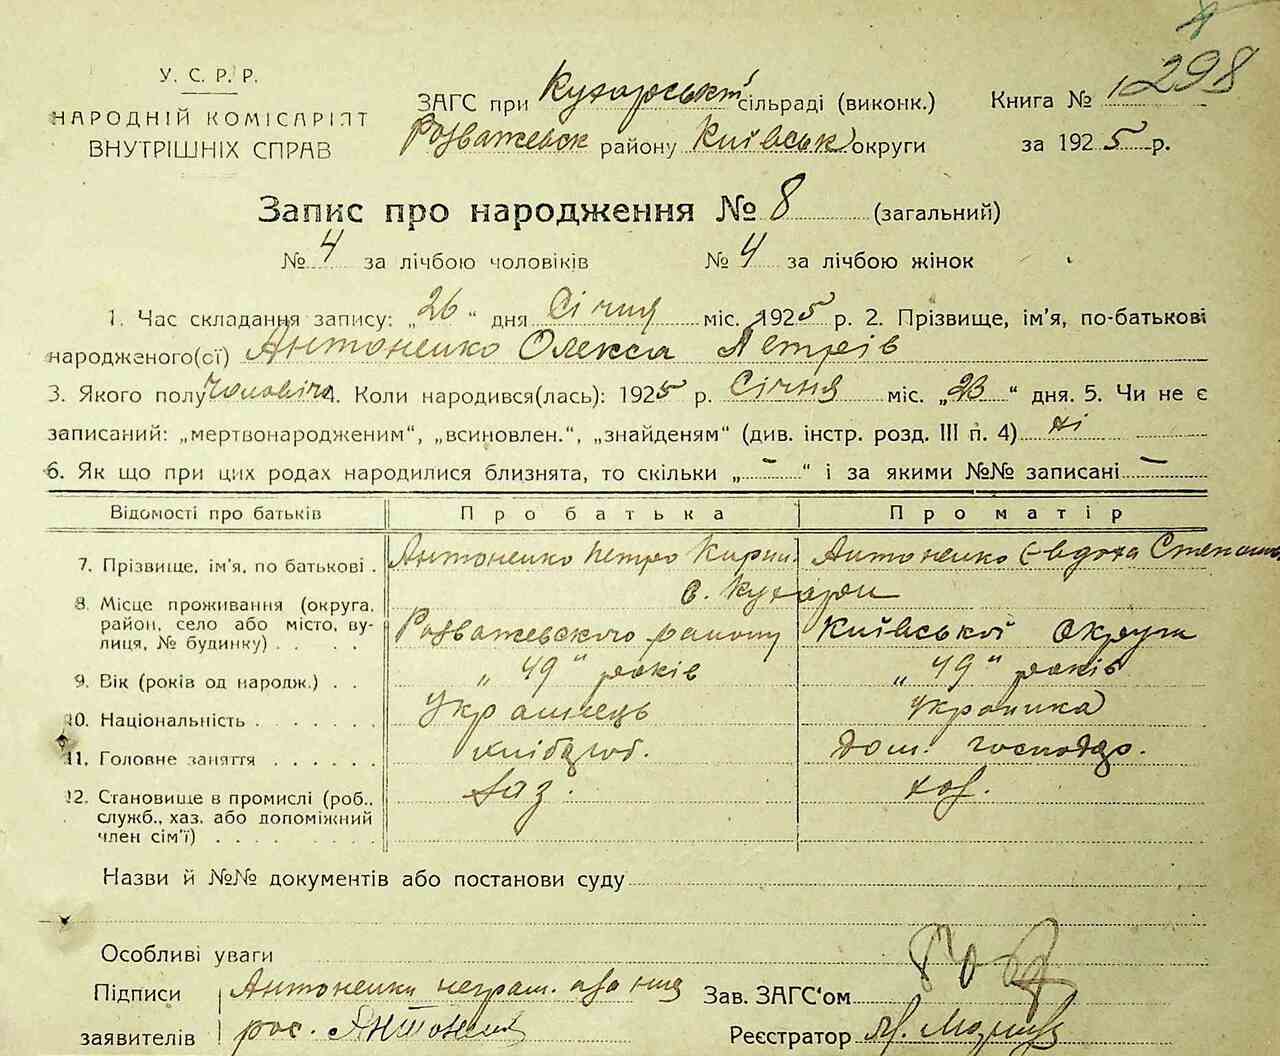 298
У. С. Р. Р.
НАРОДНІЙ КОМІСАРІЯТ
ВНУТРІШНІХ СПРАВ
ЗАГС при Кухарській сільраді (виконк.)
Розважевськ району Київськ округи
Книга №
за 1925 р.
Запис про народження № 8 (загальний)
№ 4 за лічбою чоловіків № 4 за лічбою жінок
1. Час складання запису: „26" дня Січня міс. 1925 р. 2. Прізвище, ім'я, по-батькові
народженого(ої) Антоненко Олекса Петрів
3. Якого полу Чоловіч. 4. Коли народився(лась): 1925 р. Січня міс. „23" дня. 5. Чи не є
записаний: „мертвонародженим", „всиновлен.", „знайденям" (див. інстр. розд. III п. 4) ні
6. Як що при цих родах народилися близнята, то скільки „ - " і за якими №№ записані -
Відомості про батьків Про батька Про матір
7. Прізвище, ім'я, по батькові . Антоненко Петро Кирил. Антоненко Євдоха Степанів
8. Місце проживання (округа, район, село або місто, вулиця, № будинку) . . . .
с. Кухари
Розважевского району Київської Округи
9. Вік (років од народж.) . . „49" років „49" років
10. Національність . . . . . . Українець Українка
11. Головне заняття . . . . . . хлібороб. дом. господар.
12. Становище в промислі (роб.,
служб., хаз. або допоміжний
член сім'ї) . . . . . . .
хаз.
Назви й №№ документів або постанови суду
Особливі уваги
Підписи Антоненки неграм.
заявителів рос. Антоненко
Зав. ЗАГС'ом
Реєстратор